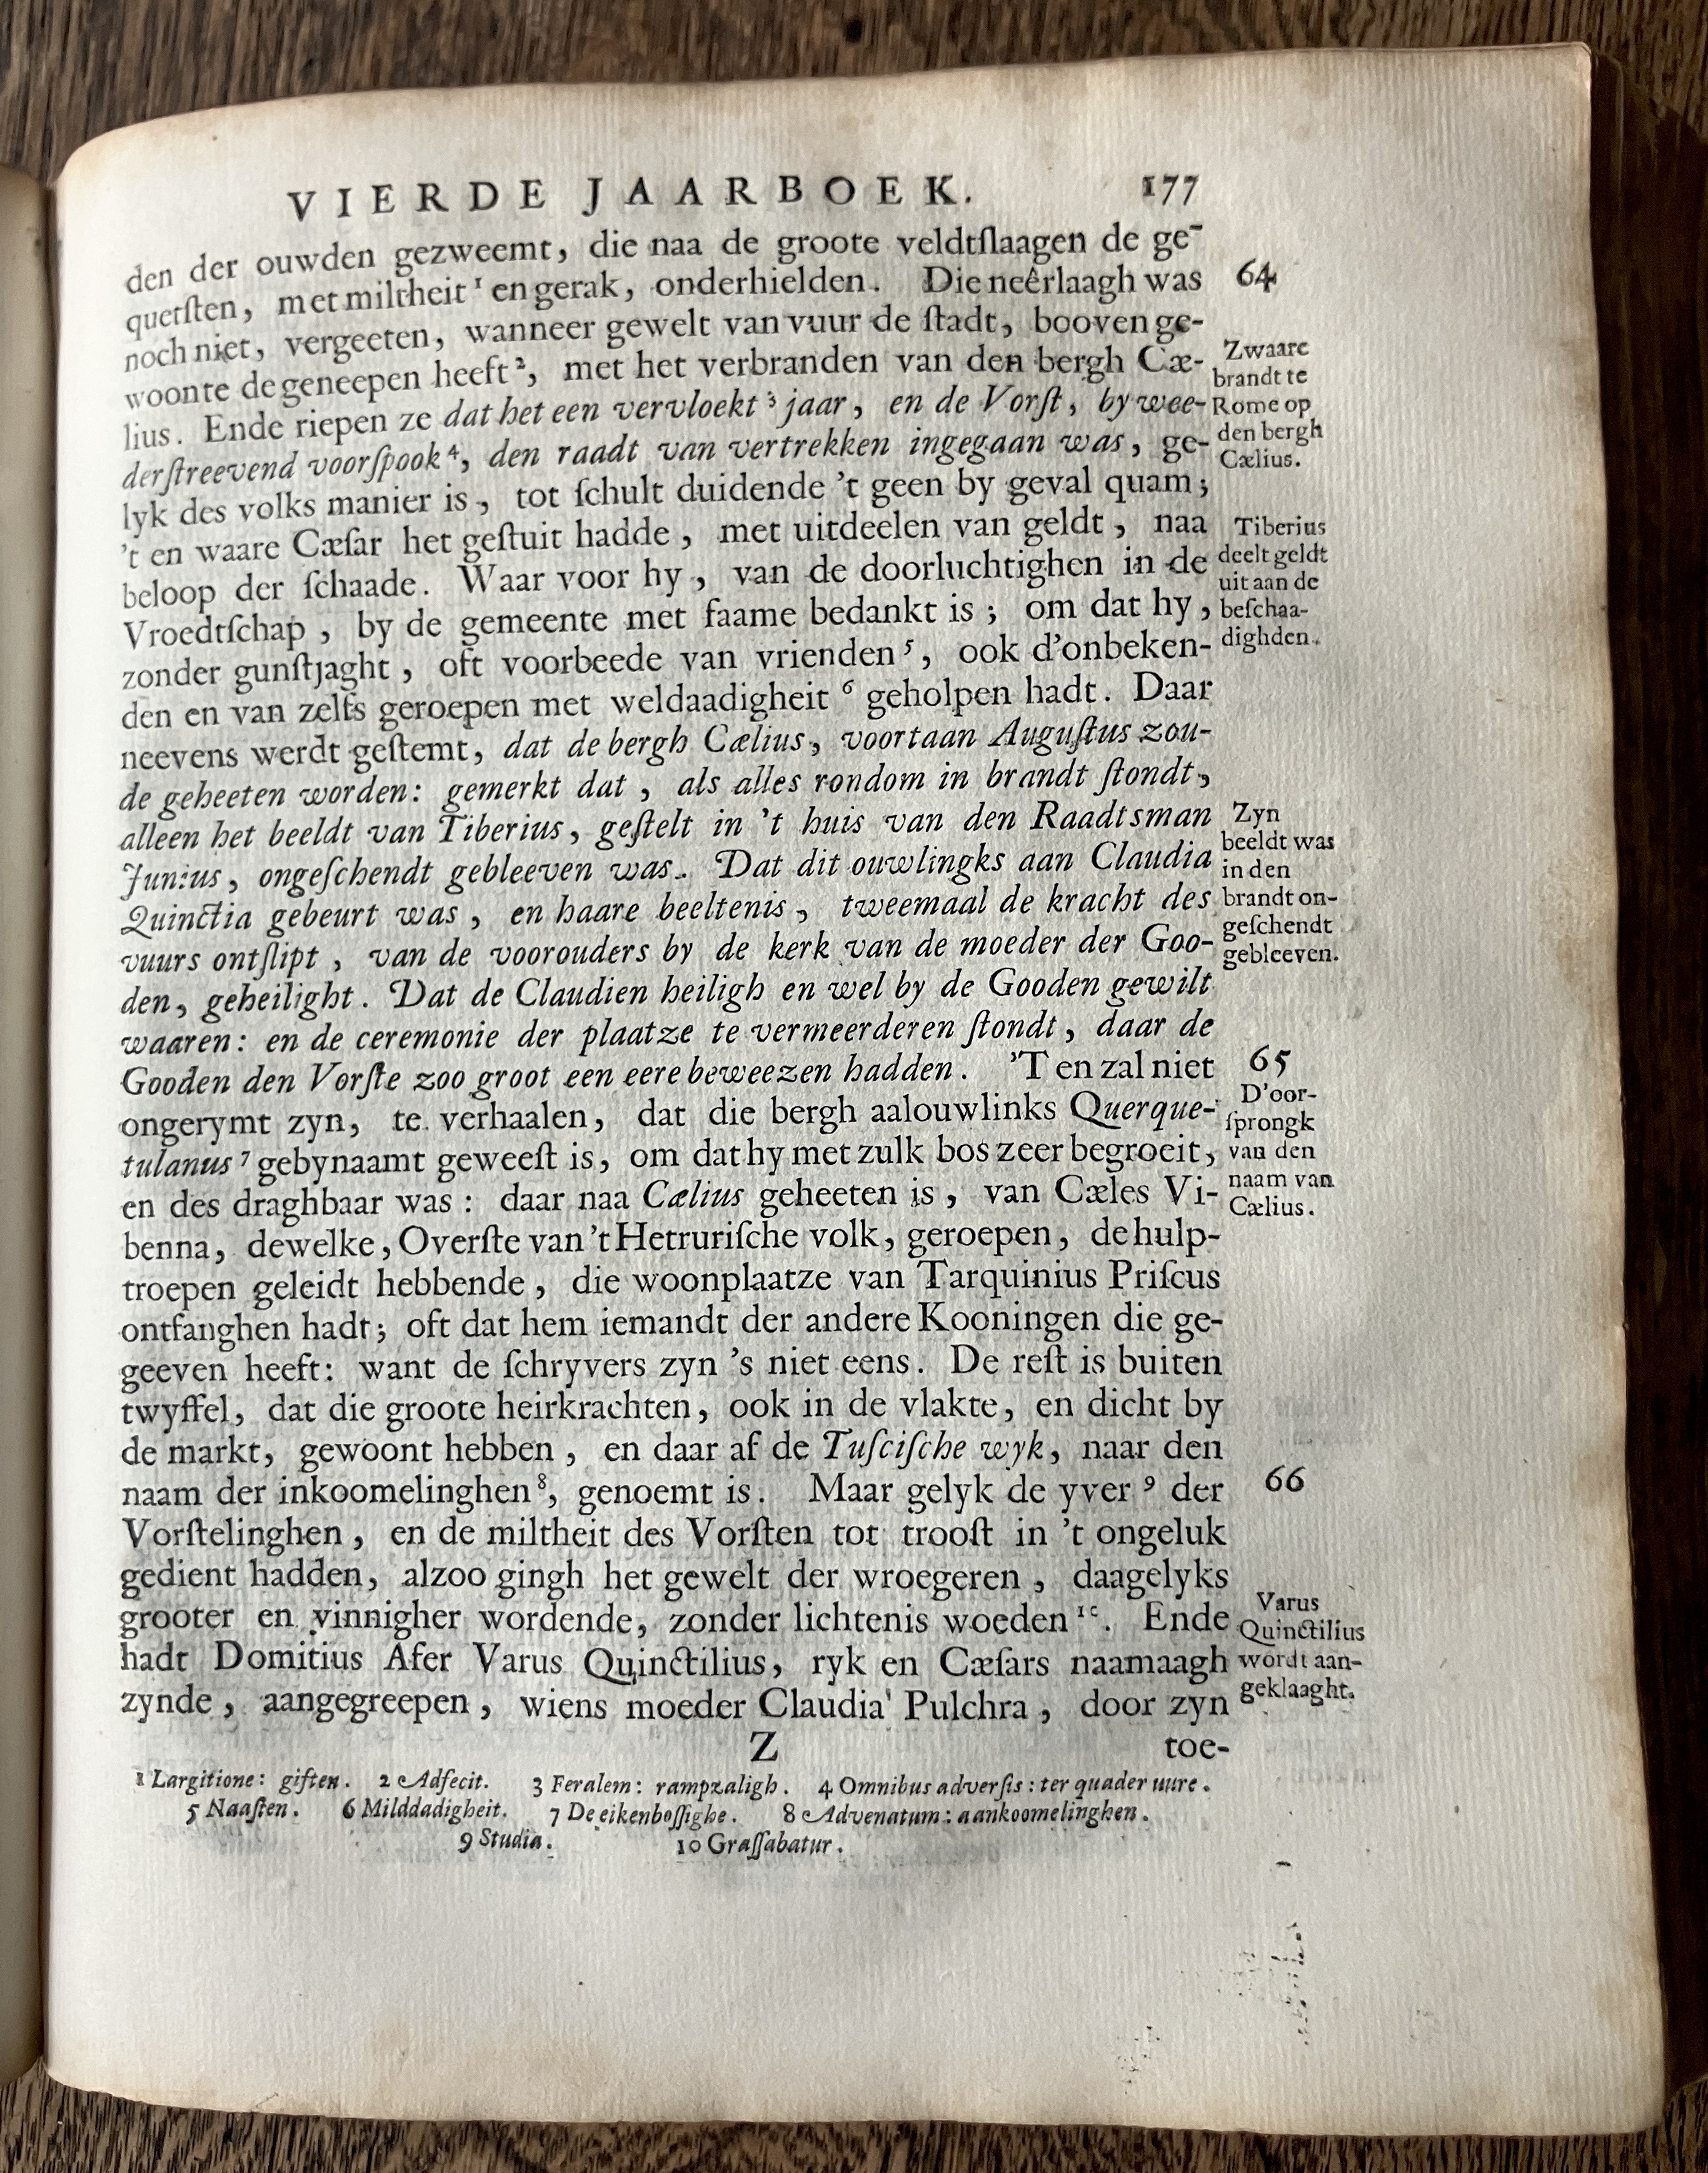 VIERDE JAARBOEK. 177
den der ouwden gezweemt, die naa de groote veldtſlaagen de ge-
quetſten, met miltheit ¹ en gerak, onderhielden. Die neêrlaagh was 64
noch niet, vergeeten, wanneer gewelt van vuur de ſtadt, booven ge-
woonte de geneepen heeft ², met het verbranden van den bergh Cæ-
lius. Ende riepen ze dat het een vervloekt ³ jaar, en de Vorſt, by wee-
derſtreevend voorſpook ⁴, den raadt van vertrekken ingegaan was, ge-
lyk des volks manier is, tot ſchult duidende 't geen by geval quam;
't en waare Cæſar het geſtuit hadde, met uitdeelen van geldt, naa
beloop der ſchaade. Waar voor hy, van de doorluchtighen in de
Vroedtſchap, by de gemeente met faame bedankt is; om dat hy,
zonder gunſtjaght, oft voorbeede van vrienden ⁵, ook d'onbeken-
den en van zelfs geroepen met weldaadigheit ⁶ geholpen hadt. Daar
neevens werdt geſtemt, dat de bergh Cælius, voortaan Auguſtus zou-
de geheeten worden: gemerkt dat, als alles rondom in brandt ſtondt,
alleen het beeldt van Tiberius, geſtelt in 't huis van den Raadtsman
Junius, ongeſchendt gebleeven was. Dat dit ouwlingks aan Claudia
Quinctia gebeurt was, en haare beeltenis, tweemaal de kracht des
vuurs ontſlipt, van de voorouders by de kerk van de moeder der Goo-
den, geheilight. Dat de Claudien heiligh en wel by de Gooden gewilt
waaren: en de ceremonie der plaatze te vermeerderen ſtondt, daar de
Gooden den Vorſte zoo groot een eere beweezen hadden. 'T en zal niet 65
ongerymt zyn, te verhaalen, dat die bergh aalouwlinks Querque-
tulanus ⁷ gebynaamt geweeſt is, om dat hy met zulk bos zeer begroeit,
en des draghbaar was: daar naa Cælius geheeten is, van Cæles Vi-
benna, dewelke, Overſte van 't Hetruriſche volk, geroepen, de hulp-
troepen geleidt hebbende, die woonplaatze van Tarquinius Priſcus
ontfanghen hadt; oft dat hem iemandt der andere Kooningen die ge-
geeven heeft: want de ſchryvers zyn 's niet eens. De reſt is buiten
twyffel, dat die groote heirkrachten, ook in de vlakte, en dicht by
de markt, gewoont hebben, en daar af de Tuſciſche wyk, naar den
naam der inkoomelinghen ⁸, genoemt is. Maar gelyk de yver ⁹ der 66
Vorſtelinghen, en de miltheit des Vorſten tot trooſt in 't ongeluk
gedient hadden, alzoo gingh het gewelt der wroegeren, daagelyks
grooter en vinnigher wordende, zonder lichtenis woeden ¹⁰. Ende
hadt Domitius Afer Varus Quinctilius, ryk en Cæſars naamaagh
zynde, aangegreepen, wiens moeder Claudia Pulchra, door zyn
Z toe-
1 Largitione: giften. 2 Adfecit. 3 Feralem: rampzaligh. 4 Omnibus adverſis: ter quader uure.
5 Naaſten. 6 Milddadigheit. 7 De eikenboſſighe. 8 Advenatum: aankoomelinghen.
9 Studia. 10 Graſſabatur.
Zwaare
brandt te
Rome op
den bergh
Cælius.
Tiberius
deelt geldt
uit aan de
beſchaa-
dighden.
Zyn
beeldt was
in den
brandt on-
geſchendt
gebleeven.
D'oor-
ſprongk
van den
naam van
Cælius.
Varus
Quinctilius
wordt aan-
geklaaght.